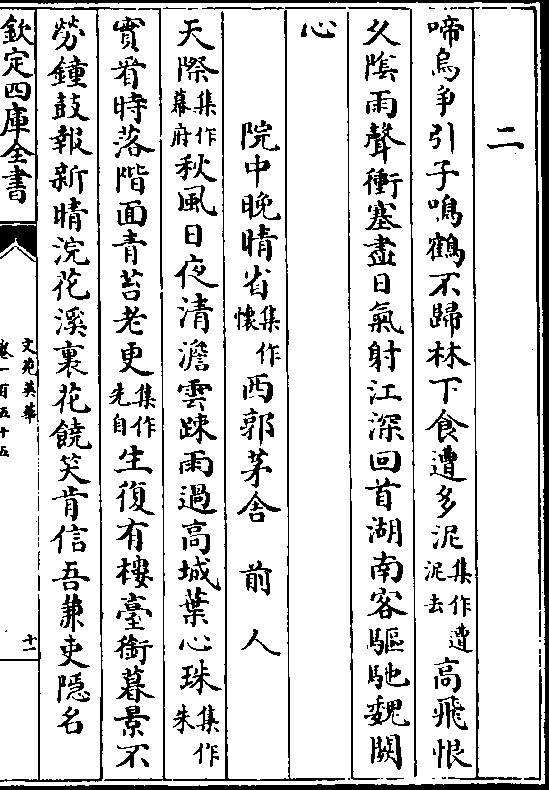 二
啼烏争引子鳴鶴不歸林下食遭多泥集作遭泥去高飛恨
乆隂雨聲衝塞盡日氣射江深回首湖南客驅馳魏闕
心
院中晚晴省集作懷西郭茅舍　前人
天際集作幕府秋風日夜清澹雲踈雨過高城葉心珠集作朱
實看時落階面青苔老更集作先自生復有樓臺銜暮景不
勞鐘鼓報新晴浣花溪裏花饒笑肯信吾兼吏隠名
欽定四庫全書
文苑英華
卷一百五十五
十一